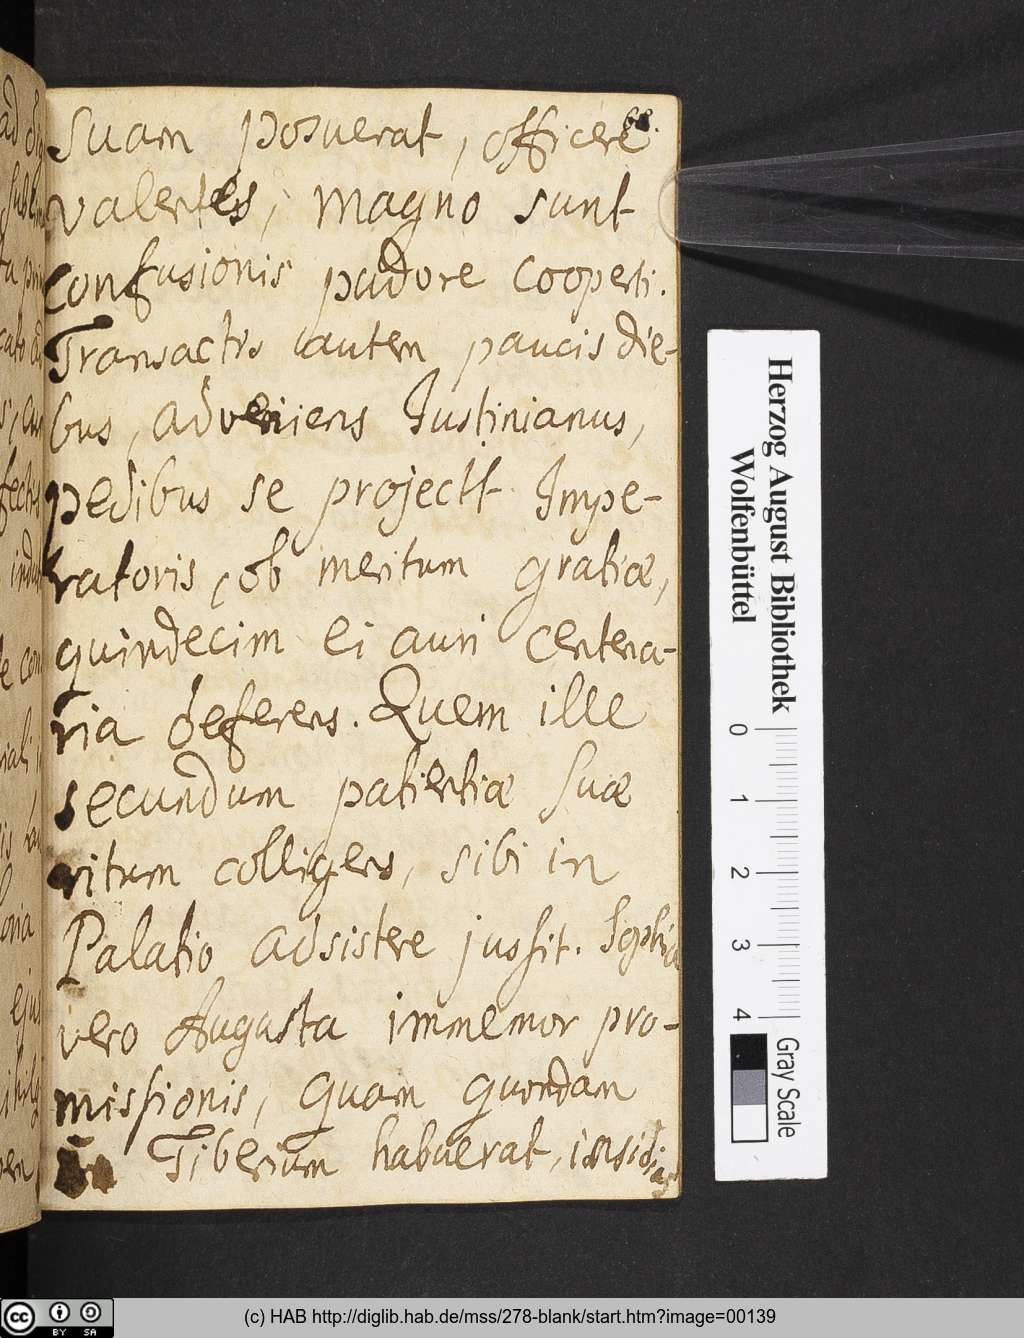 68.
suam posuerat, officere
valentes, magno sunt
confusionis pudore cooperti.
Transactis autem paucis die-
bus, adveniens Justinianus,
pedibus se projecit Impe-
ratoris, ob meritum gratiæ,
quindecim ei auri centena-
ria deferens. Quem ille
secundum patientiæ suæ
ritum colligens, sibi in
Palatio adsistere jussit. Sophia
vero Augusta immemor pro-
missionis, quam quondam
in Tiberium habuerat, insidias
Herzog August Bibliothek
Wolfenbüttel
0 1 2 3 4
Gray Scale
(c) HAB http://diglib.hab.de/mss/278-blank/start.htm?image=00139
cc BY SA